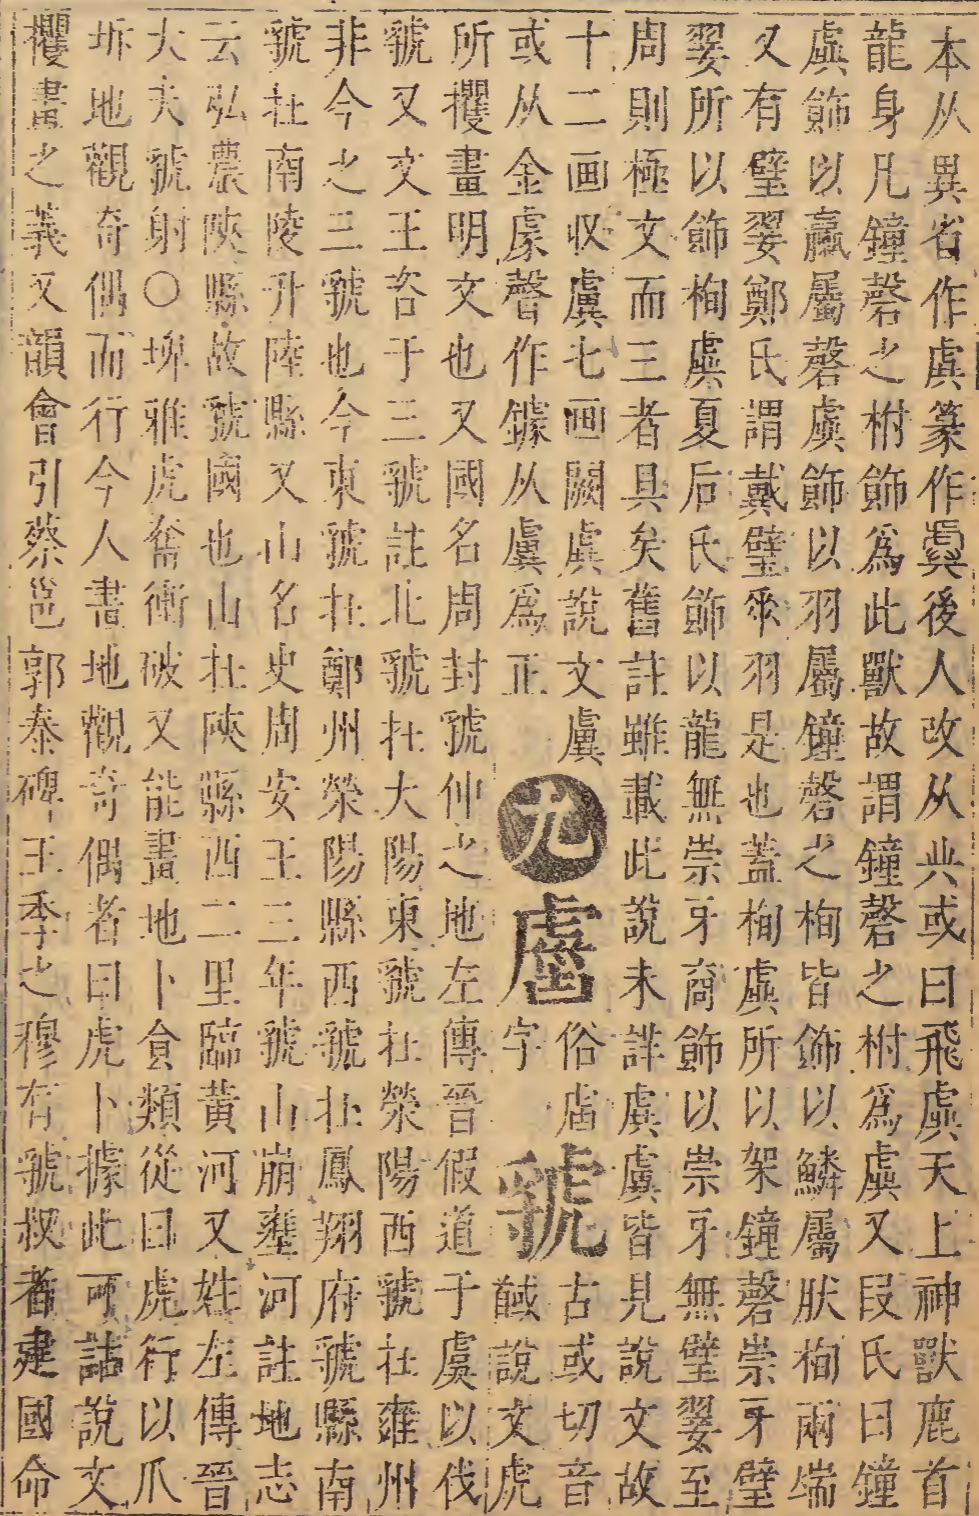 本从異省作虡篆作𧇽後人改从业或曰飛虡天上神獸鹿首
龍身凡鐘磬之柎飾爲此獸故謂鐘磬之柎爲虡又叚氏曰鐘
虡飾以臝屬磬虡飾以羽屬鐘磬之栒皆飾以鱗屬肰栒兩端
又有璧翣鄭氏謂戴璧𠂹羽是也蓋栒虡所以架鐘磬崇牙璧
翣所以飾栒虡夏后氏飾以龍無崇牙商飾以崇牙無璧翣至
周則極文而三者具矣舊註雖載此說未詳虡虞皆見說文故
十二画収虞七画闕虡說文虞
或从金豦聲作鐻从虞爲正
九
俗
字
虢
古或切音
馘說文虎
所攫畫明文也又國名周封虢仲之地左傳晉假道于虞以伐
虢又文王咨于二虢註北虢在大陽東虢在滎陽西虢在雍州
非今之三虢也今東虢在鄭州滎陽縣西虢在鳳翔府虢縣南
虢在南陵升陸縣又山名史周安王三年虢山崩壅河註地志
云弘農陝縣故虢國也山在陝縣西二里臨黃河又姓左傳晉
大夫虢射○埤雅虎奮衝破又能畫地卜食類從曰虎行以爪
坼地觀奇偶而行今人畫地觀奇偶者曰虎卜據此可詁說文
攫畫之義又韻會引蔡邕郭泰碑王季之穆有虢叔者建國命